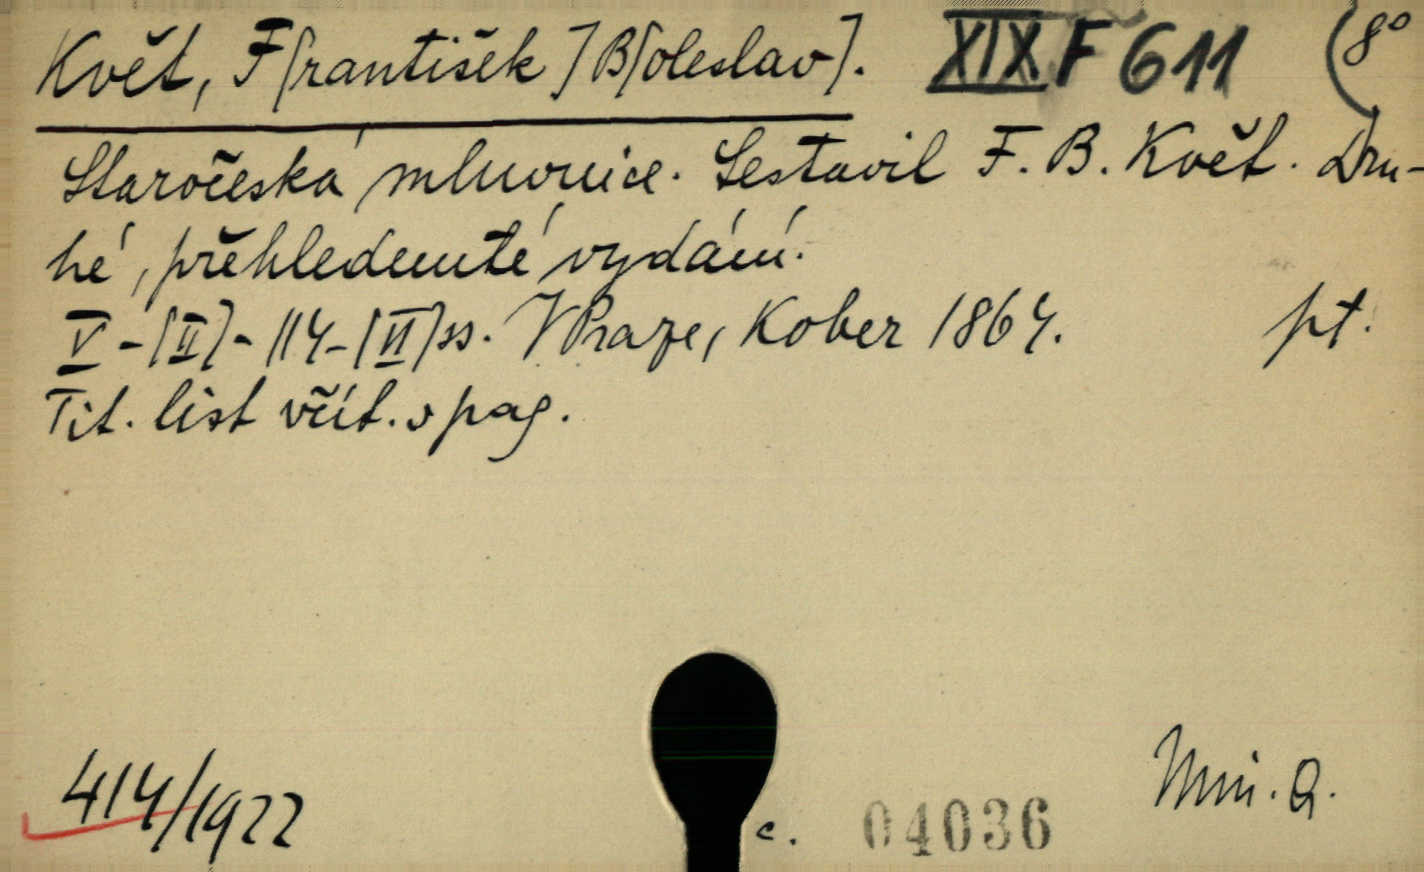 Květ, F[rantišek] B[oleslav]. XIX F 611 (8°
Staročeská mluvnice. Sestavil F. B. Květ. Dru-
hé, přehlednuté vydání.
V-[II]-114-[VI]ss. V Praze, Kober 1864. pt.
Tit. list včít. v pag.
414/1922
c. 04036